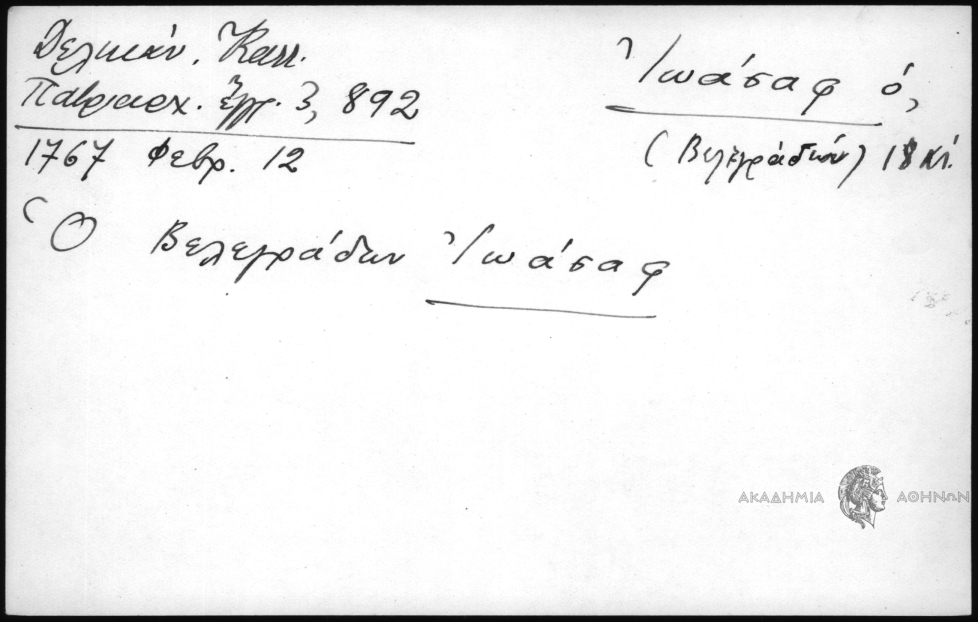 Δελικάν. Καλλ.
Πατριαρχ. ἔγγρ. 3, 892
1767 Φεβρ. 12
Ἰωάσαφ ὁ,
(Βελεγράδων) 18 αἰ.
Ὁ Βελεγράδων Ἰωάσαφ
ΑΚΑΔΗΜΙΑ ΑΘΗΝΩΝ